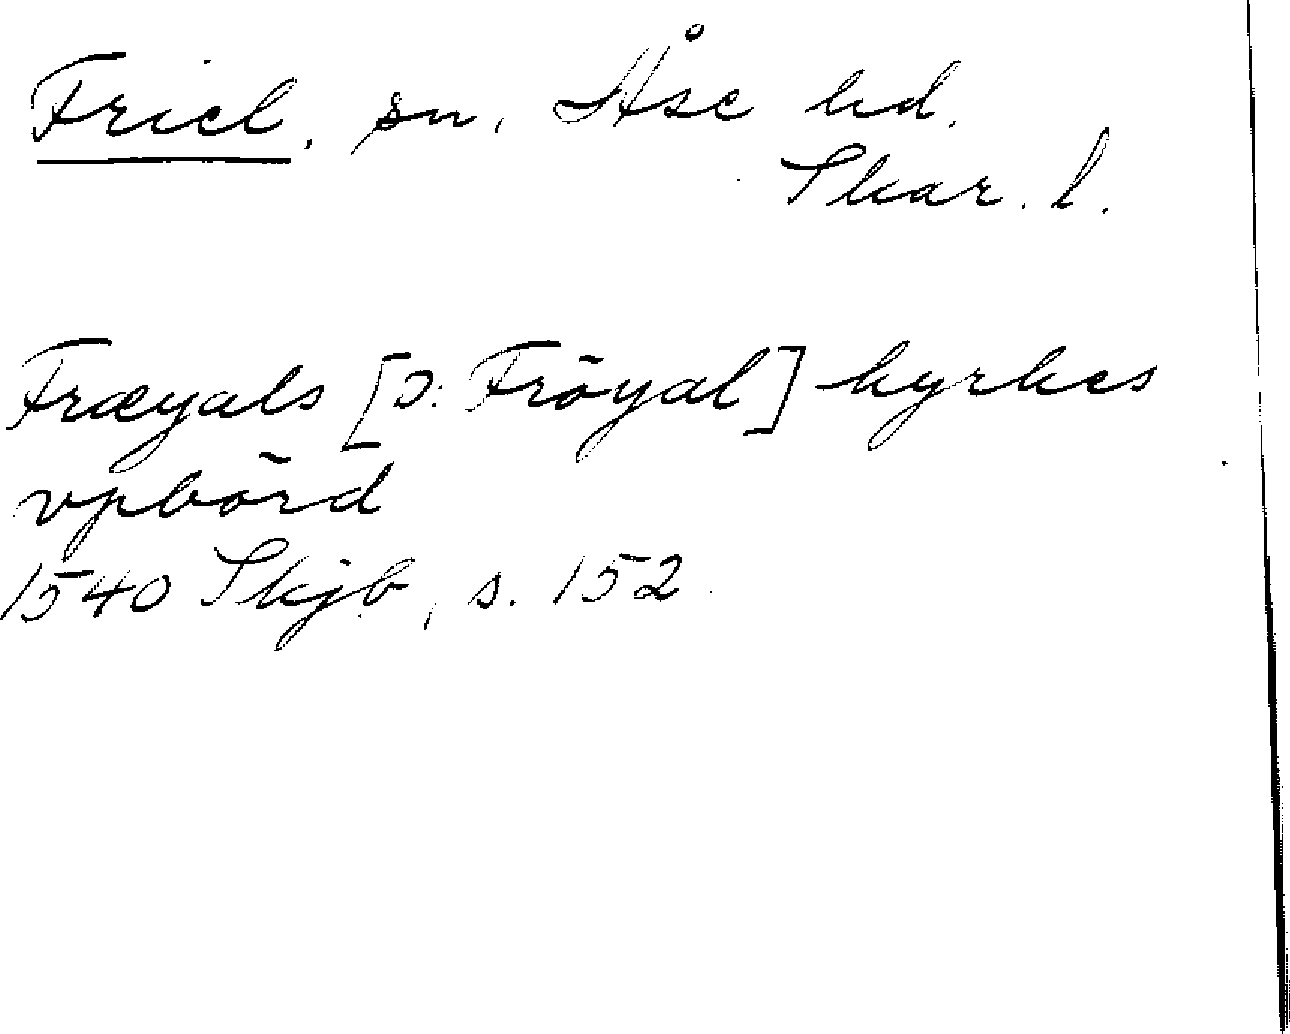 Friel, sn, Åse hd.
Skar. l.
Fræyals [ɔ: Fröyal] kyrkes
vpbörd
1540 Skjb, s. 152